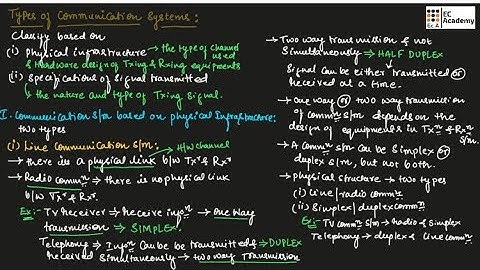 Types of Communication Systems :
Classify based on
(i) Physical infrastructure → the type of channel used
& Hardware design of Txing & Rxing equipments
(ii) Specifications of signal transmitted
→ the nature and type of Txing Signal.
I. Communication s/m based on physical Infrastructure:
two types
(i) Line Communication s/m: → H/w channel
→ there is a physical link b/w Txr & Rxr
→ Radio commn → there is no physical link
b/w Txr & Rxr.
Ex:- TV Receiver → Receive infon → one way
transmission → SIMPLEX,
Telephony → Infon can be be transmitted & → DUPLEX
Received simultaneously → two way transmission
EC Academy
EC A
→ Two way transmission & not
Simultaneously → HALF DUPLEX
Signal can be either transmitted or
Received at a time.
→ one way or two way transmission
of commn s/m depends on the
design of equipments in Txn & Rxn s/m.
→ A commn s/m can be simplex or
duplex s/m, but not both.
→ physical structure → two types
(i) Line / radio commn
(ii) Simplex / duplex commn
Ex:- TV commn s/m → Radio & Simplex
Telephony → duplex & Line commn